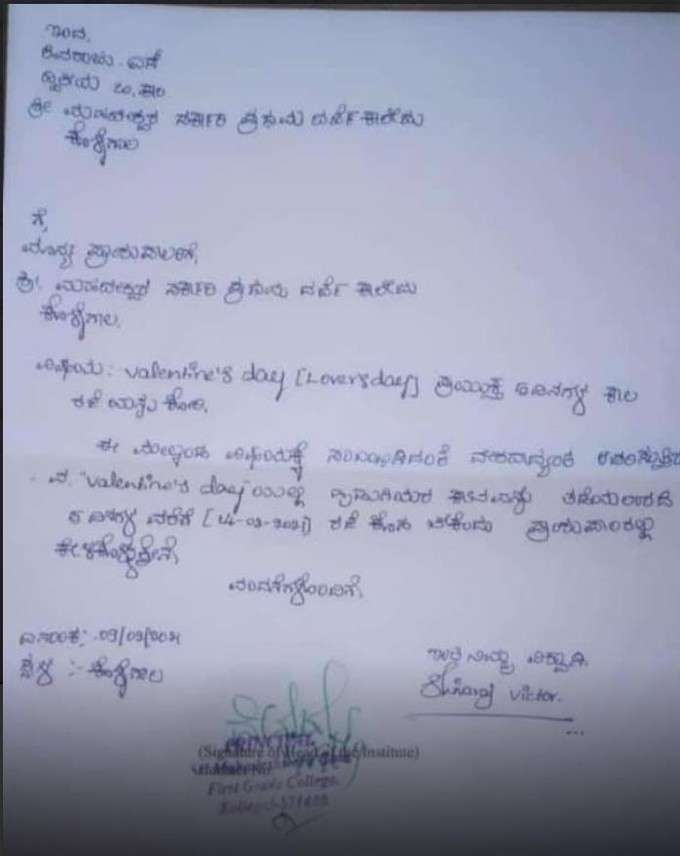 ಇಂದ,
ಶಿವರಾಜು. ಎನ್
ದ್ವಿತೀಯ ಬಿ.ಕಾಂ
ಶ್ರೀ ಮಹದೇಶ್ವರ ಸರ್ಕಾರಿ ಪ್ರಥಮ ದರ್ಜೆ ಕಾಲೇಜು
ಕೊಳ್ಳೇಗಾಲ
ಗೆ,
ಮಾನ್ಯ ಪ್ರಾಂಶುಪಾಲರು,
ಶ್ರೀ. ಮಹದೇಶ್ವರ ಸರ್ಕಾರಿ ಪ್ರಥಮ ದರ್ಜೆ ಕಾಲೇಜು
ಕೊಳ್ಳೇಗಾಲ.
ವಿಷಯ: valentine's day [Loversday] ಪ್ರಯುಕ್ತ 5 ದಿನಗಳ ಕಾಲ
ರಜೆ ಕೋರಿ.
ಈ ಮೇಲ್ಕಂಡ ವಿಷಯಕ್ಕೆ ಸಂಬಂಧಿಸಿದಂತೆ
"valentine's day" ಯಲ್ಲಿ
ದಿನಗಳ ವರೆಗೆ [14-02-2021] ರಜೆ ಬೇಕೆಂದು
ಕೇಳಿಕೊಳ್ಳುತ್ತೇನೆ.
ವಂದನೆಗಳೊಂದಿಗೆ.
ದಿನಾಂಕ: 09/02/2021
ಸ್ಥಳ :- ಕೊಳ್ಳೇಗಾಲ
ಇಂತಿ ನಿಮ್ಮ ವಿಶ್ವಾಸಿ.
Shivaraj victor.
(Signature of Head of the Institute)
First Grade College,
Kollegal-571440